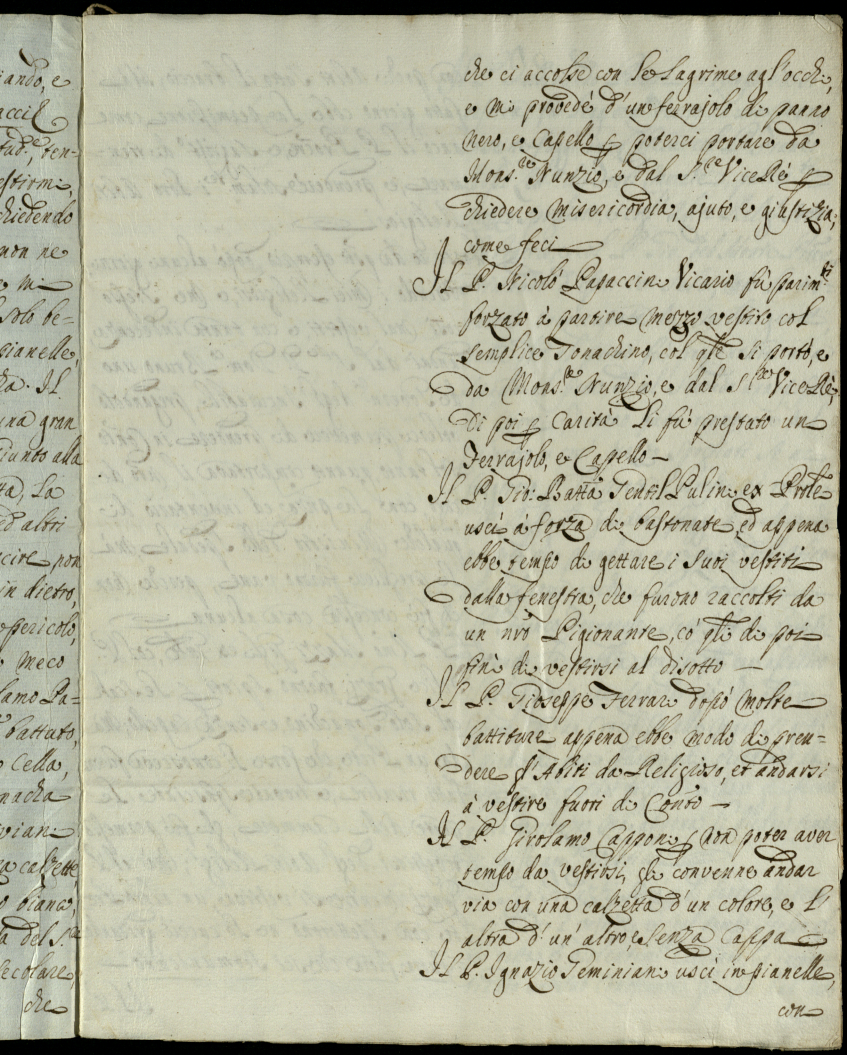 iando, e
accil
tud.e, ten-
estirmi,
chiedendo
non ne
e mi
solo be=
pianelle,
ha. Il
una gran
giunto alla
ta, la
ed altri
cire non
in dietro,
pericolo,
meco
lamo Pa=
battuto,
Cella,
nacha
vian
calzette
bianco,
a del S.r
secolare,
che
che ci accolse con le lagrime agl'occhi,
e mi provedé d'un ferrajolo di panno
nero, e Capello p poterci portare da
Mons.re Nunzio, e dal S.re ViceRè p
chiedere misericordia, ajuto, e giustizia,
come feci
Il P. Nicolò Pagaccini Vicario fù parim.ti
forzato à partire mezzo vestito col
semplice Tonachino, col q̃le si portò, e
da Mons.re Nunzio, e dal S.re ViceRè,
Di poi p Carità li fù prestato un
Ferrajolo, e Capello –
Il P. Gio: Batt̃a Gentil Pulini ex Prõle
uscì à forza di bastonate, ed appena
ebbe tempo di gettare i suoi vestiti
dalla fenestra, che furono raccolti da
un nr̃o Pigionante, có q̃li di poi
finì di vestirsi al disotto —
Il P. Gioseppe Ferrari dopò molte
battiture appena ebbe modo di pren=
dere gl'Abiti da Religioso, et andarsi
à vestire fuori di Conṽto –
Il P. Girolamo Capponi p non poter aver
tempo da vestirsi, gli convenne andar
via con una calzetta d'un colore, e l'
altra d'un'altro, e senza Cappa
Il P. Ignazio Geminiani uscì in pianelle,
con